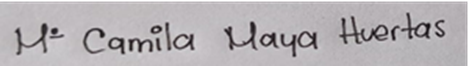 Mª Camila Maya Huertas